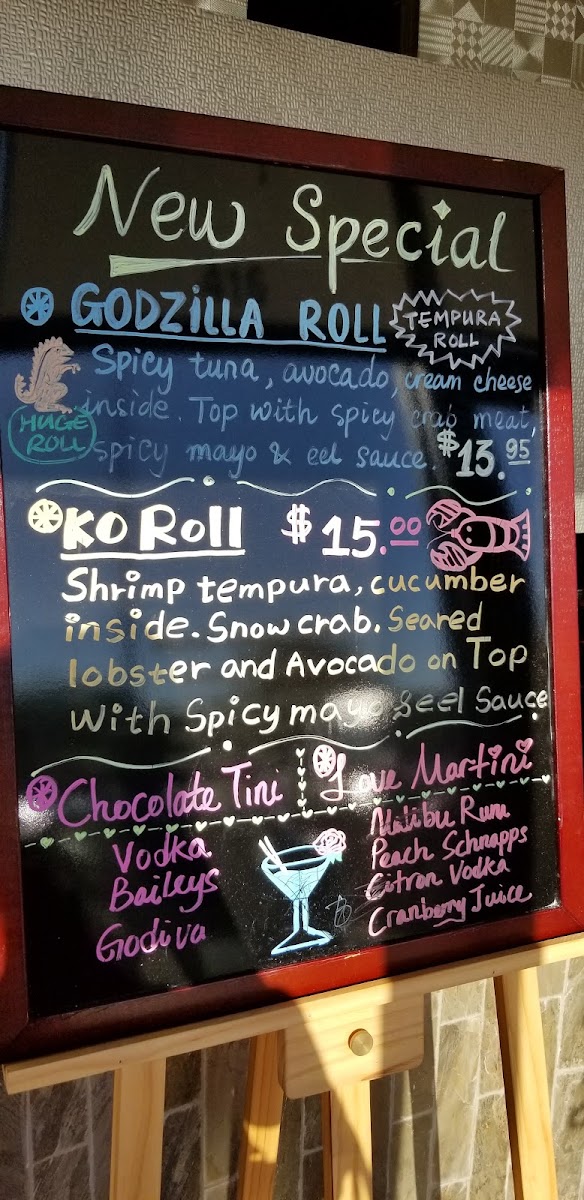 New Special
GODZILLA ROLL
TEMPURA
ROLL
Spicy tuna, avocado, cream cheese
HUGE
ROLL
inside. Top with spicy crab meat,
spicy mayo & eel sauce. $13.95
KO Roll $15.00
Shrimp tempura, cucumber
inside. Snow crab. Seared
lobster and Avocado on Top
With Spicy mayo & eel Sauce
Chocolate Tini
Vodka
Baileys
Godiva
Love Martini
Malibu Rum
Peach Schnapps
Citron Vodka
Cranberry Juice